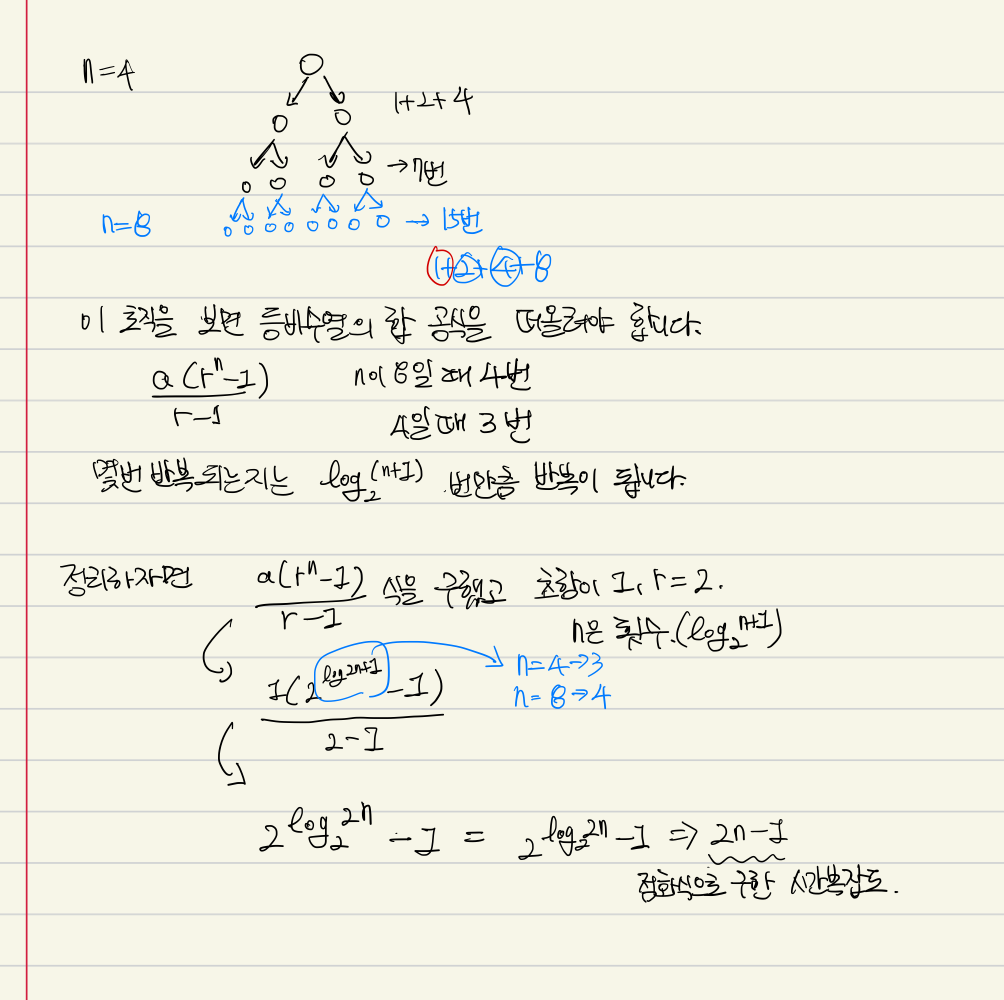 n=4
1+2+4
→7번
n=8
→ 15번
1+2+4+8
이 로직을 보면 등비수열의 합 공식을 떠올려야 합니다.
a(rⁿ-1)
r-1
n이 8일 때 4번
4일 때 3번
몇번 반복 되는지는 log₂(n+1) 번만큼 반복이 됩니다.
정리하자면 a(rⁿ-1) 식을 구했고 초항이 1, r=2.
r-1
n은 횟수.(log₂n+1)
1(2^log2n+1 -1)
2-1
n=4→3
n=8→4
2^log₂2n -1 = 2^log₂2n -1 ⇒ 2n-1
점화식으로 구한 시간복잡도.